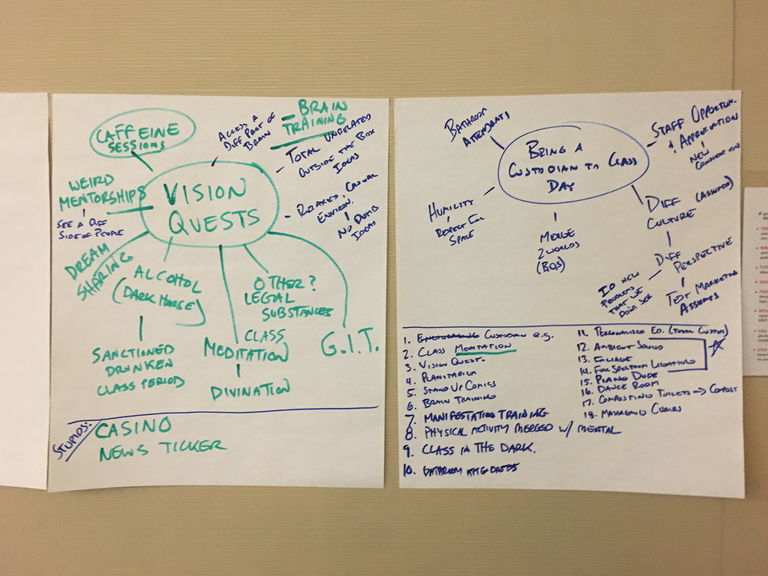 CAFFEINE
SESSIONS
ACCESS A
DIFF PART OF
BRAIN
BRAIN
TRAINING
- TOTAL UNRELATED
OUTSIDE THE BOX
IDEAS
WEIRD
MENTORSHIPS
SEE A DIFF
SIDE OF PEOPLE
VISION
QUESTS
- RELAXED CASUAL
ENVIRON.
NO DUMB
IDEAS
DREAM
SHARING
ALCOHOL
(DARK HORSE)
SANCTIONED
DRUNKEN
CLASS PERIOD
OTHER?
LEGAL
SUBSTANCES
CLASS
MEDITATION
DIVINATION
G.I.T.
STUPIDS:
CASINO
NEWS TICKER
BATHROOM
ATTENDANTS
BEING A
CUSTODIAN TO CLASS
DAY
STAFF OPPORTUN.
& APPRECIATION
NEW
CONNECTION
HUMILITY
RESPECT FOR
SPACE
MERGE
2 WORLDS
DIFF
CULTURE
DIFF
PERSPECTIVE
ID NEW
PROBLEMS
THAT WE
DON'T SEE
TEST MARKETING
ASSETS
1. CUSTODIAN e.g.
2. CLASS MEDITATION
3. VISION QUEST.
4. PLANITARIUM
5. STAND UP COMICS
6. BRAIN TRAINING
7. MANIFESTATION TRAINING
8. PHYSICAL ACTIVITY MERGED W/ MENTAL
9. CLASS IN THE DARK.
10. BATHROOM ATTENDANTS
11. PERSONALIZED ED. (TOTAL CUSTOM)
12. AMBIENT SOUND
13. FOLIAGE
14. FULL SPECTRUM LIGHTING
15. PIANO DUDE
16. DANCE ROOM
17. COMPOSTING TOILETS → COMPOST
18. MASSAGING CHAIRS